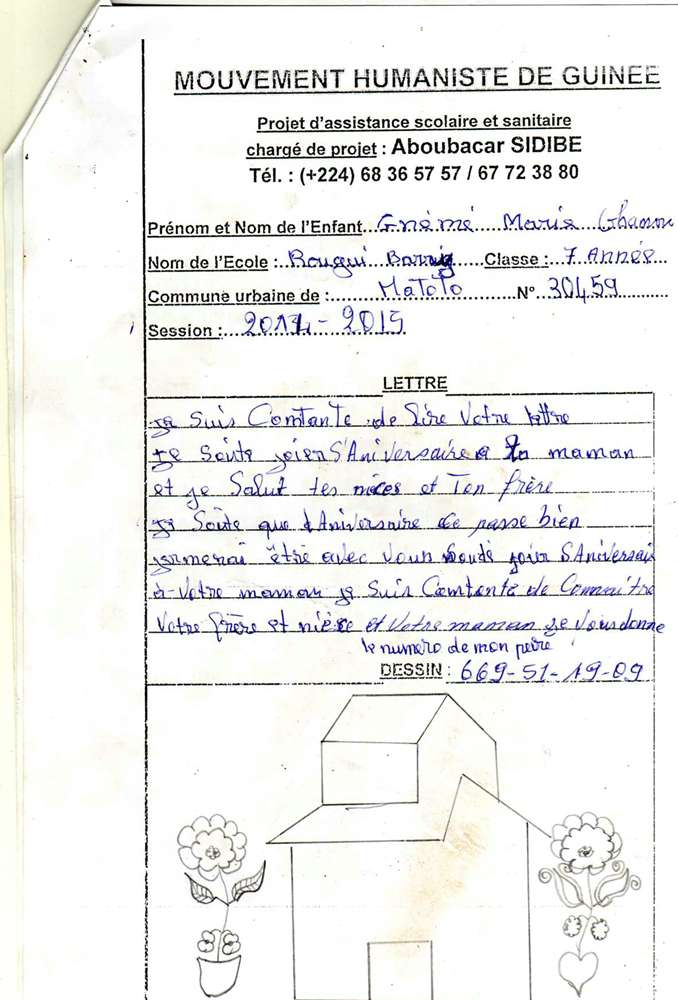 MOUVEMENT HUMANISTE DE GUINEE
Projet d'assistance scolaire et sanitaire
chargé de projet : Aboubacar SIDIBE
Tél. : (+224) 68 36 57 57 / 67 72 38 80
Prénom et Nom de l'Enfant...Gnémé Marie
Nom de l'Ecole : Rougui Classe : 7 Année
Commune urbaine de : Matoto N° 30459
Session : 2014-2015
LETTRE
je suis Comtante de lire votre lettre
je soite joier S'Aniversaire a ta maman
et je Salut tes nièces et Ton frère
je Soite que l'Aniversaire ce passe bien
jemerai être avec vous joier S'Aniversair
à votre maman je suis Comtante de Connaitre
votre frère et nièce et votre maman je vous donne
le numero de mon peire
DESSIN : 669-51-19-09